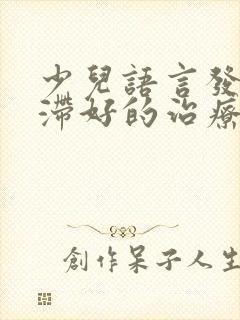 少兒語言發
滯好的治療
創作呆子人生